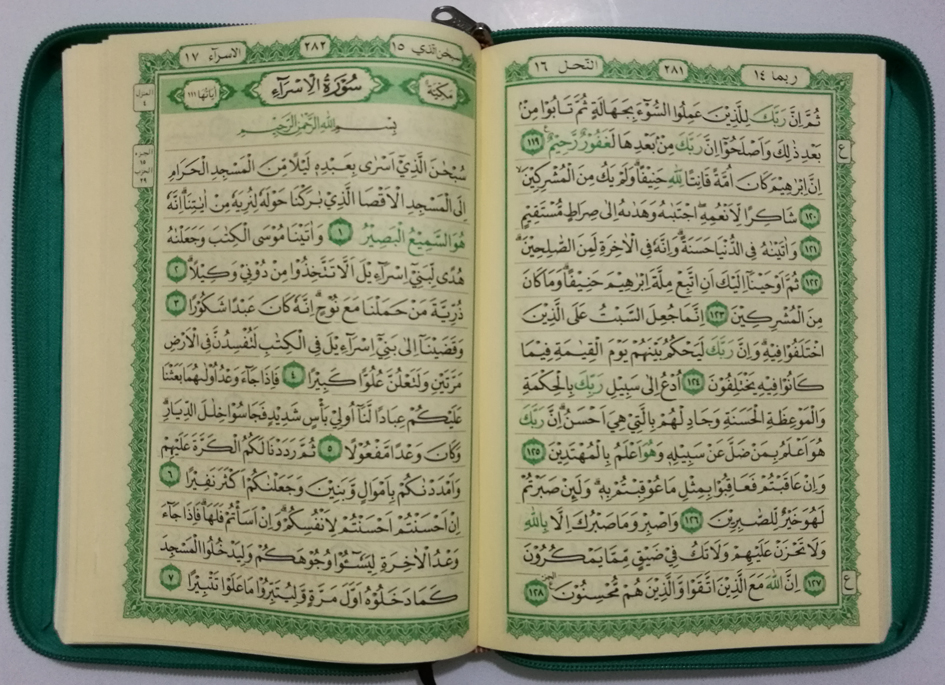 ربما ١٤
٢٨١
النّحل ١٦
ثُمَّ اِنَّ رَبَّكَ لِلَّذِيْنَ عَمِلُوا السُّوْۤءَ بِجَهَالَةٍ ثُمَّ تَابُوْا مِنْۢ
بَعْدِ ذٰلِكَ وَاَصْلَحُوْٓا اِنَّ رَبَّكَ مِنْۢ بَعْدِهَا لَغَفُوْرٌ رَّحِيْمٌ ࣖ ١١٩
اِنَّ اِبْرٰهِيْمَ كَانَ اُمَّةً قَانِتًا لِّلّٰهِ حَنِيْفًاۗ وَلَمْ يَكُ مِنَ الْمُشْرِكِيْنَۙ
١٢٠ شَاكِرًا لِّاَنْعُمِهٖۗ اِجْتَبٰىهُ وَهَدٰىهُ اِلٰى صِرَاطٍ مُّسْتَقِيْمٍ
١٢١ وَاٰتَيْنٰهُ فِى الدُّنْيَا حَسَنَةًۗ وَاِنَّهٗ فِى الْاٰخِرَةِ لَمِنَ الصّٰلِحِيْنَۗ
١٢٢ ثُمَّ اَوْحَيْنَآ اِلَيْكَ اَنِ اتَّبِعْ مِلَّةَ اِبْرٰهِيْمَ حَنِيْفًاۗ وَمَا كَانَ
مِنَ الْمُشْرِكِيْنَ ١٢٣ اِنَّمَا جُعِلَ السَّبْتُ عَلَى الَّذِيْنَ
اخْتَلَفُوْا فِيْهِۗ وَاِنَّ رَبَّكَ لَيَحْكُمُ بَيْنَهُمْ يَوْمَ الْقِيٰمَةِ فِيْمَا
كَانُوْا فِيْهِ يَخْتَلِفُوْنَ ١٢٤ اُدْعُ اِلٰى سَبِيْلِ رَبِّكَ بِالْحِكْمَةِ
وَالْمَوْعِظَةِ الْحَسَنَةِ وَجَادِلْهُمْ بِالَّتِيْ هِيَ اَحْسَنُۗ اِنَّ رَبَّكَ
هُوَ اَعْلَمُ بِمَنْ ضَلَّ عَنْ سَبِيْلِهٖ وَهُوَ اَعْلَمُ بِالْمُهْتَدِيْنَ ١٢٥
وَاِنْ عَاقَبْتُمْ فَعَاقِبُوْا بِمِثْلِ مَا عُوْقِبْتُمْ بِهٖۗ وَلَىِٕنْ صَبَرْتُمْ
لَهُوَ خَيْرٌ لِّلصّٰبِرِيْنَ ١٢٦ وَاصْبِرْ وَمَا صَبْرُكَ اِلَّا بِاللّٰهِ
وَلَا تَحْزَنْ عَلَيْهِمْ وَلَا تَكُ فِيْ ضَيْقٍ مِّمَّا يَمْكُرُوْنَ
١٢٧ اِنَّ اللّٰهَ مَعَ الَّذِيْنَ اتَّقَوْا وَّالَّذِيْنَ هُمْ مُّحْسِنُوْنَ ࣖ ١٢٨
ع
ع
سبحن الذي ١٥
٢٨٢
الاسرآء ١٧
مَكِّيَّة
سُوْرَةُ الْاِسْرَآءِ
اٰيَاتُهَا ١١١
المنزل
٤
الجزء
١٥
الحزب
٢٩
بِسْمِ اللّٰهِ الرَّحْمٰنِ الرَّحِيْمِ
سُبْحٰنَ الَّذِيْٓ اَسْرٰى بِعَبْدِهٖ لَيْلًا مِّنَ الْمَسْجِدِ الْحَرَامِ
اِلَى الْمَسْجِدِ الْاَقْصَا الَّذِيْ بٰرَكْنَا حَوْلَهٗ لِنُرِيَهٗ مِنْ اٰيٰتِنَاۗ اِنَّهٗ
هُوَ السَّمِيْعُ الْبَصِيْرُ ١ وَاٰتَيْنَا مُوْسَى الْكِتٰبَ وَجَعَلْنٰهُ
هُدًى لِّبَنِيْٓ اِسْرَاۤءِيْلَ اَلَّا تَتَّخِذُوْا مِنْ دُوْنِيْ وَكِيْلًاۗ ٢
ذُرِّيَّةَ مَنْ حَمَلْنَا مَعَ نُوْحٍۗ اِنَّهٗ كَانَ عَبْدًا شَكُوْرًا ٣
وَقَضَيْنَآ اِلٰى بَنِيْٓ اِسْرَاۤءِيْلَ فِى الْكِتٰبِ لَتُفْسِدُنَّ فِى الْاَرْضِ
مَرَّتَيْنِ وَلَتَعْلُنَّ عُلُوًّا كَبِيْرًا ٤ فَاِذَا جَاۤءَ وَعْدُ اُوْلٰىهُمَا بَعَثْنَا
عَلَيْكُمْ عِبَادًا لَّنَآ اُولِيْ بَأْسٍ شَدِيْدٍ فَجَاسُوْا خِلٰلَ الدِّيَارِۗ
وَكَانَ وَعْدًا مَّفْعُوْلًا ٥ ثُمَّ رَدَدْنَا لَكُمُ الْكَرَّةَ عَلَيْهِمْ
وَاَمْدَدْنٰكُمْ بِاَمْوَالٍ وَّبَنِيْنَ وَجَعَلْنٰكُمْ اَكْثَرَ نَفِيْرًا ٦
اِنْ اَحْسَنْتُمْ اَحْسَنْتُمْ لِاَنْفُسِكُمْۗ وَاِنْ اَسَأْتُمْ فَلَهَاۗ فَاِذَا جَاۤءَ
وَعْدُ الْاٰخِرَةِ لِيَسٗۤـُٔوْا وُجُوْهَكُمْ وَلِيَدْخُلُوا الْمَسْجِدَ
كَمَا دَخَلُوْهُ اَوَّلَ مَرَّةٍ وَّلِيُتَبِّرُوْا مَا عَلَوْا تَتْبِيْرًا ٧